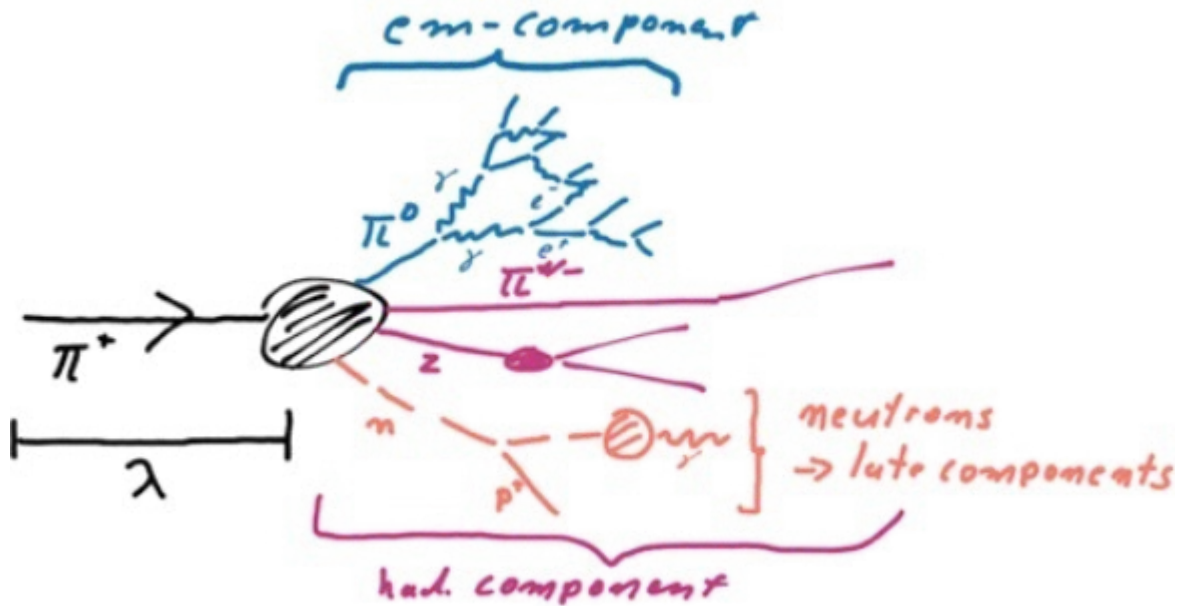 em-component
γ
e⁻
π⁰
γ
e⁺
π⁺/⁻
π⁺
z
n
γ
p⁺
neutrons
→ late components
λ
had. component